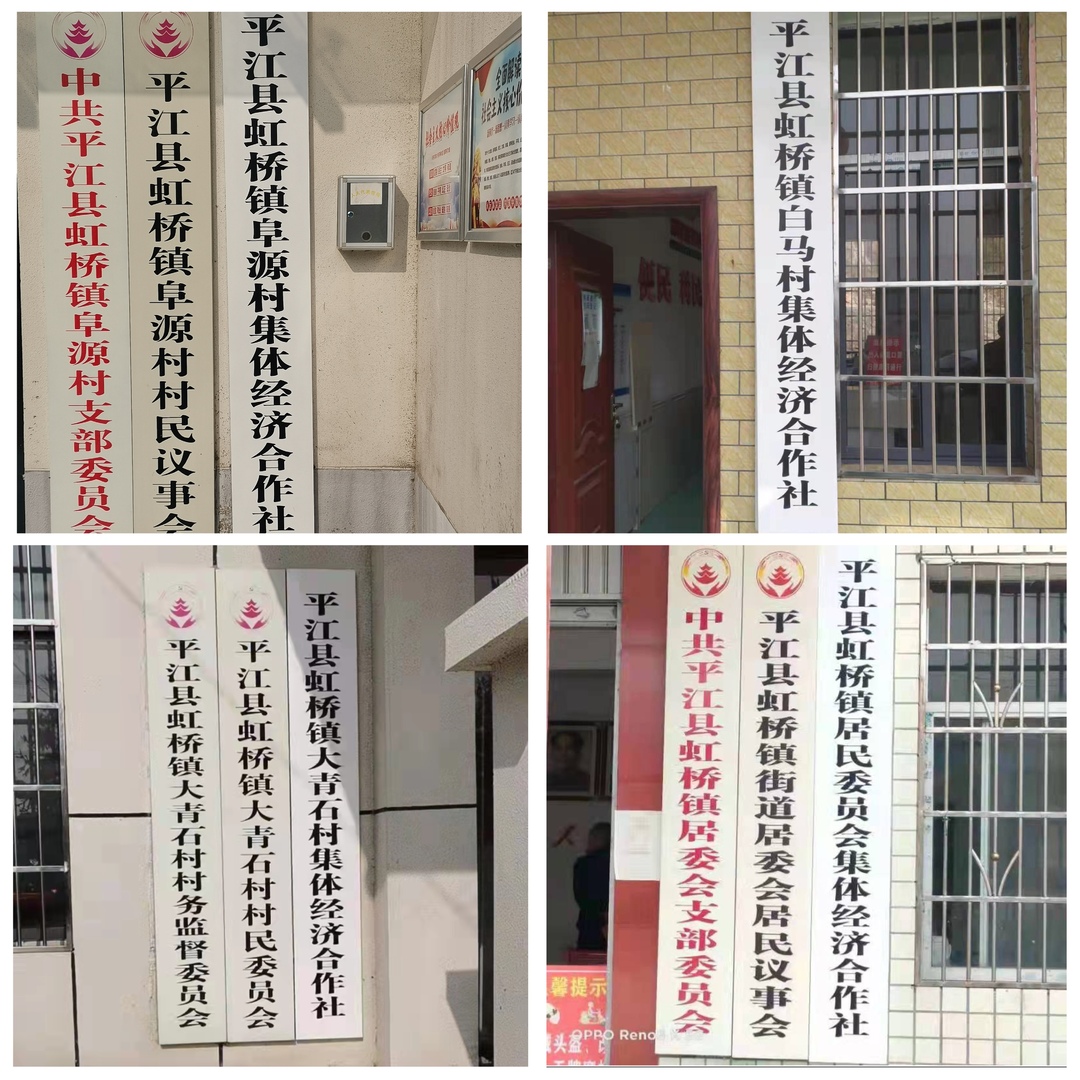 中共平江县虹桥镇阜源村支部委员会
平江县虹桥镇阜源村村民议事会
平江县虹桥镇阜源村集体经济合作社
全面解读
社会主义核心价
平江县虹桥镇白马村集体经济合作社
便民
平江县虹桥镇大青石村村务监督委员会
平江县虹桥镇大青石村村民委员会
平江县虹桥镇大青石村集体经济合作社
中共平江县虹桥镇居委会支部委员会
平江县虹桥镇街道居委会居民议事会
平江县虹桥镇居民委员会集体经济合作社
馨提示
OPPO Reno
戴头盔